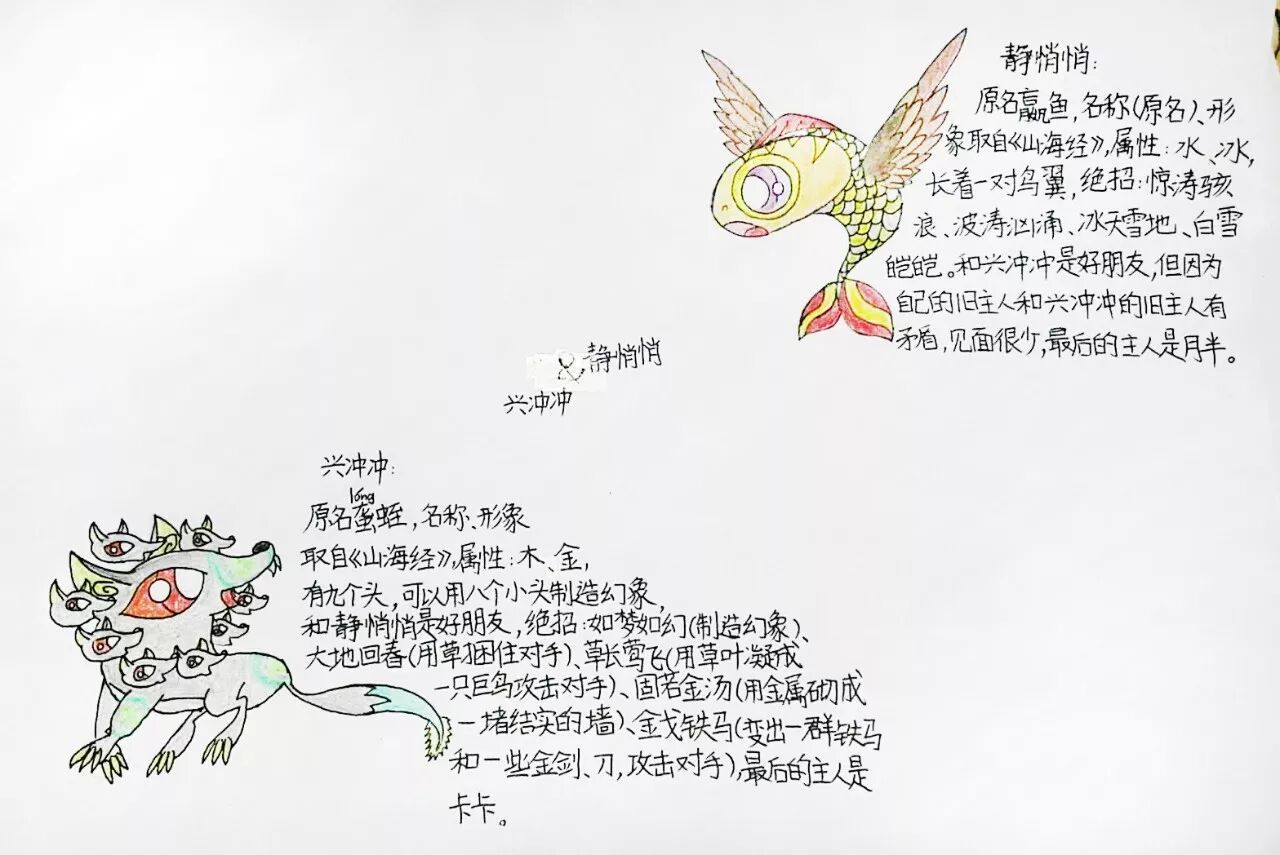 静悄悄:
原名嬴鱼,名称(原名)、形
象取自《山海经》,属性:水、冰,
长着一对鸟翼,绝招:惊涛骇
浪、波涛汹涌、冰天雪地、白雪
皑皑。和兴冲冲是好朋友,但因为
自己的旧主人和兴冲冲的旧主人有
矛盾,见面很少,最后的主人是月半。
&静悄悄
兴冲冲
兴冲冲:
lóng
原名蛮蛭,名称、形象
取自《山海经》,属性:木、金,
有九个头,可以用八个小头制造幻象,
和静悄悄是好朋友,绝招:如梦如幻(制造幻象)、
大地回春(用草捆住对手)、草长莺飞(用草叶凝成
一只巨鸟攻击对手)、固若金汤(用金属砌成
一堵结实的墙)、金戈铁马(变出一群铁马
和一些金剑、刀,攻击对手),最后的主人是
卡卡。